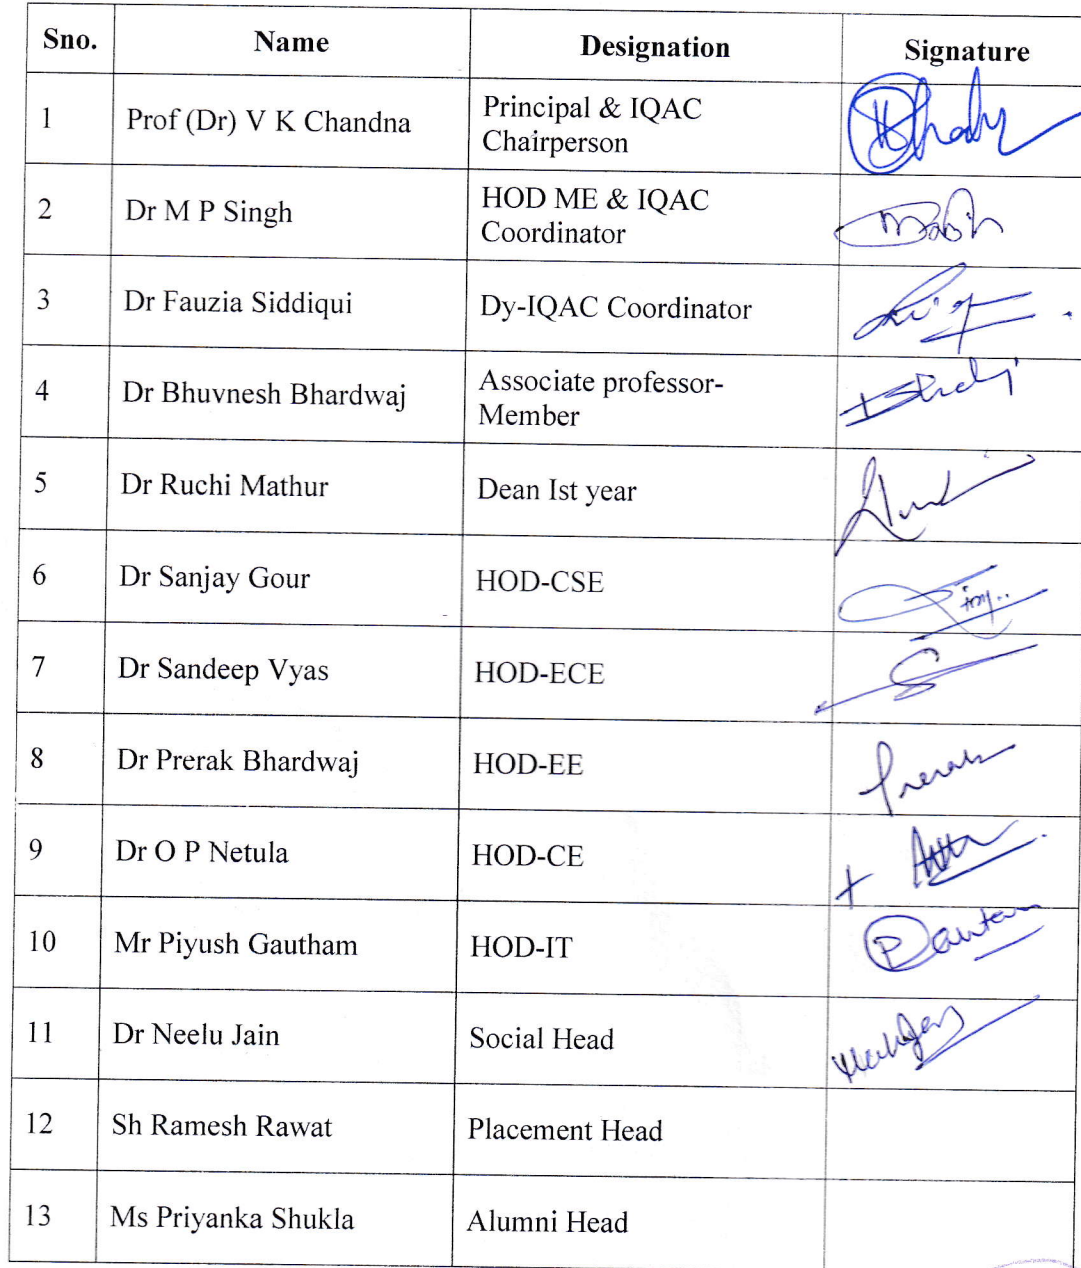 Sno. Name Designation Signature
1 Prof (Dr) V K Chandna Principal & IQAC
Chairperson
2 Dr M P Singh HOD ME & IQAC
Coordinator
3 Dr Fauzia Siddiqui Dy-IQAC Coordinator
4 Dr Bhuvnesh Bhardwaj Associate professor-
Member
5 Dr Ruchi Mathur Dean Ist year
6 Dr Sanjay Gour HOD-CSE
7 Dr Sandeep Vyas HOD-ECE
8 Dr Prerak Bhardwaj HOD-EE Prerak
9 Dr O P Netula HOD-CE
10 Mr Piyush Gautham HOD-IT
11 Dr Neelu Jain Social Head
12 Sh Ramesh Rawat Placement Head
13 Ms Priyanka Shukla Alumni Head